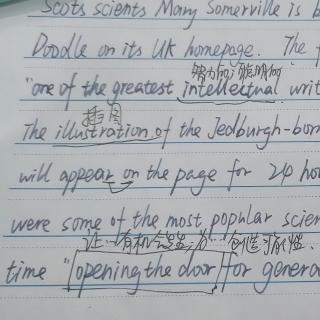 Scots scients Mary Somerville is b
Doodle on its UK homepage. The
"one of the greatest intellectual writ
插图
The illustration of the Jedburgh-born
will appear on the page for 24 hou
were some of the most popular scien
让…有机会…
time "opening the door for genera